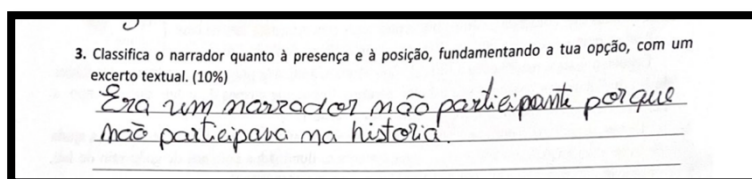 3. Classifica o narrador quanto à presença e à posição, fundamentando a tua opção, com um
excerto textual. (10%)
Era um narrador não participante porque
não participava na historia.